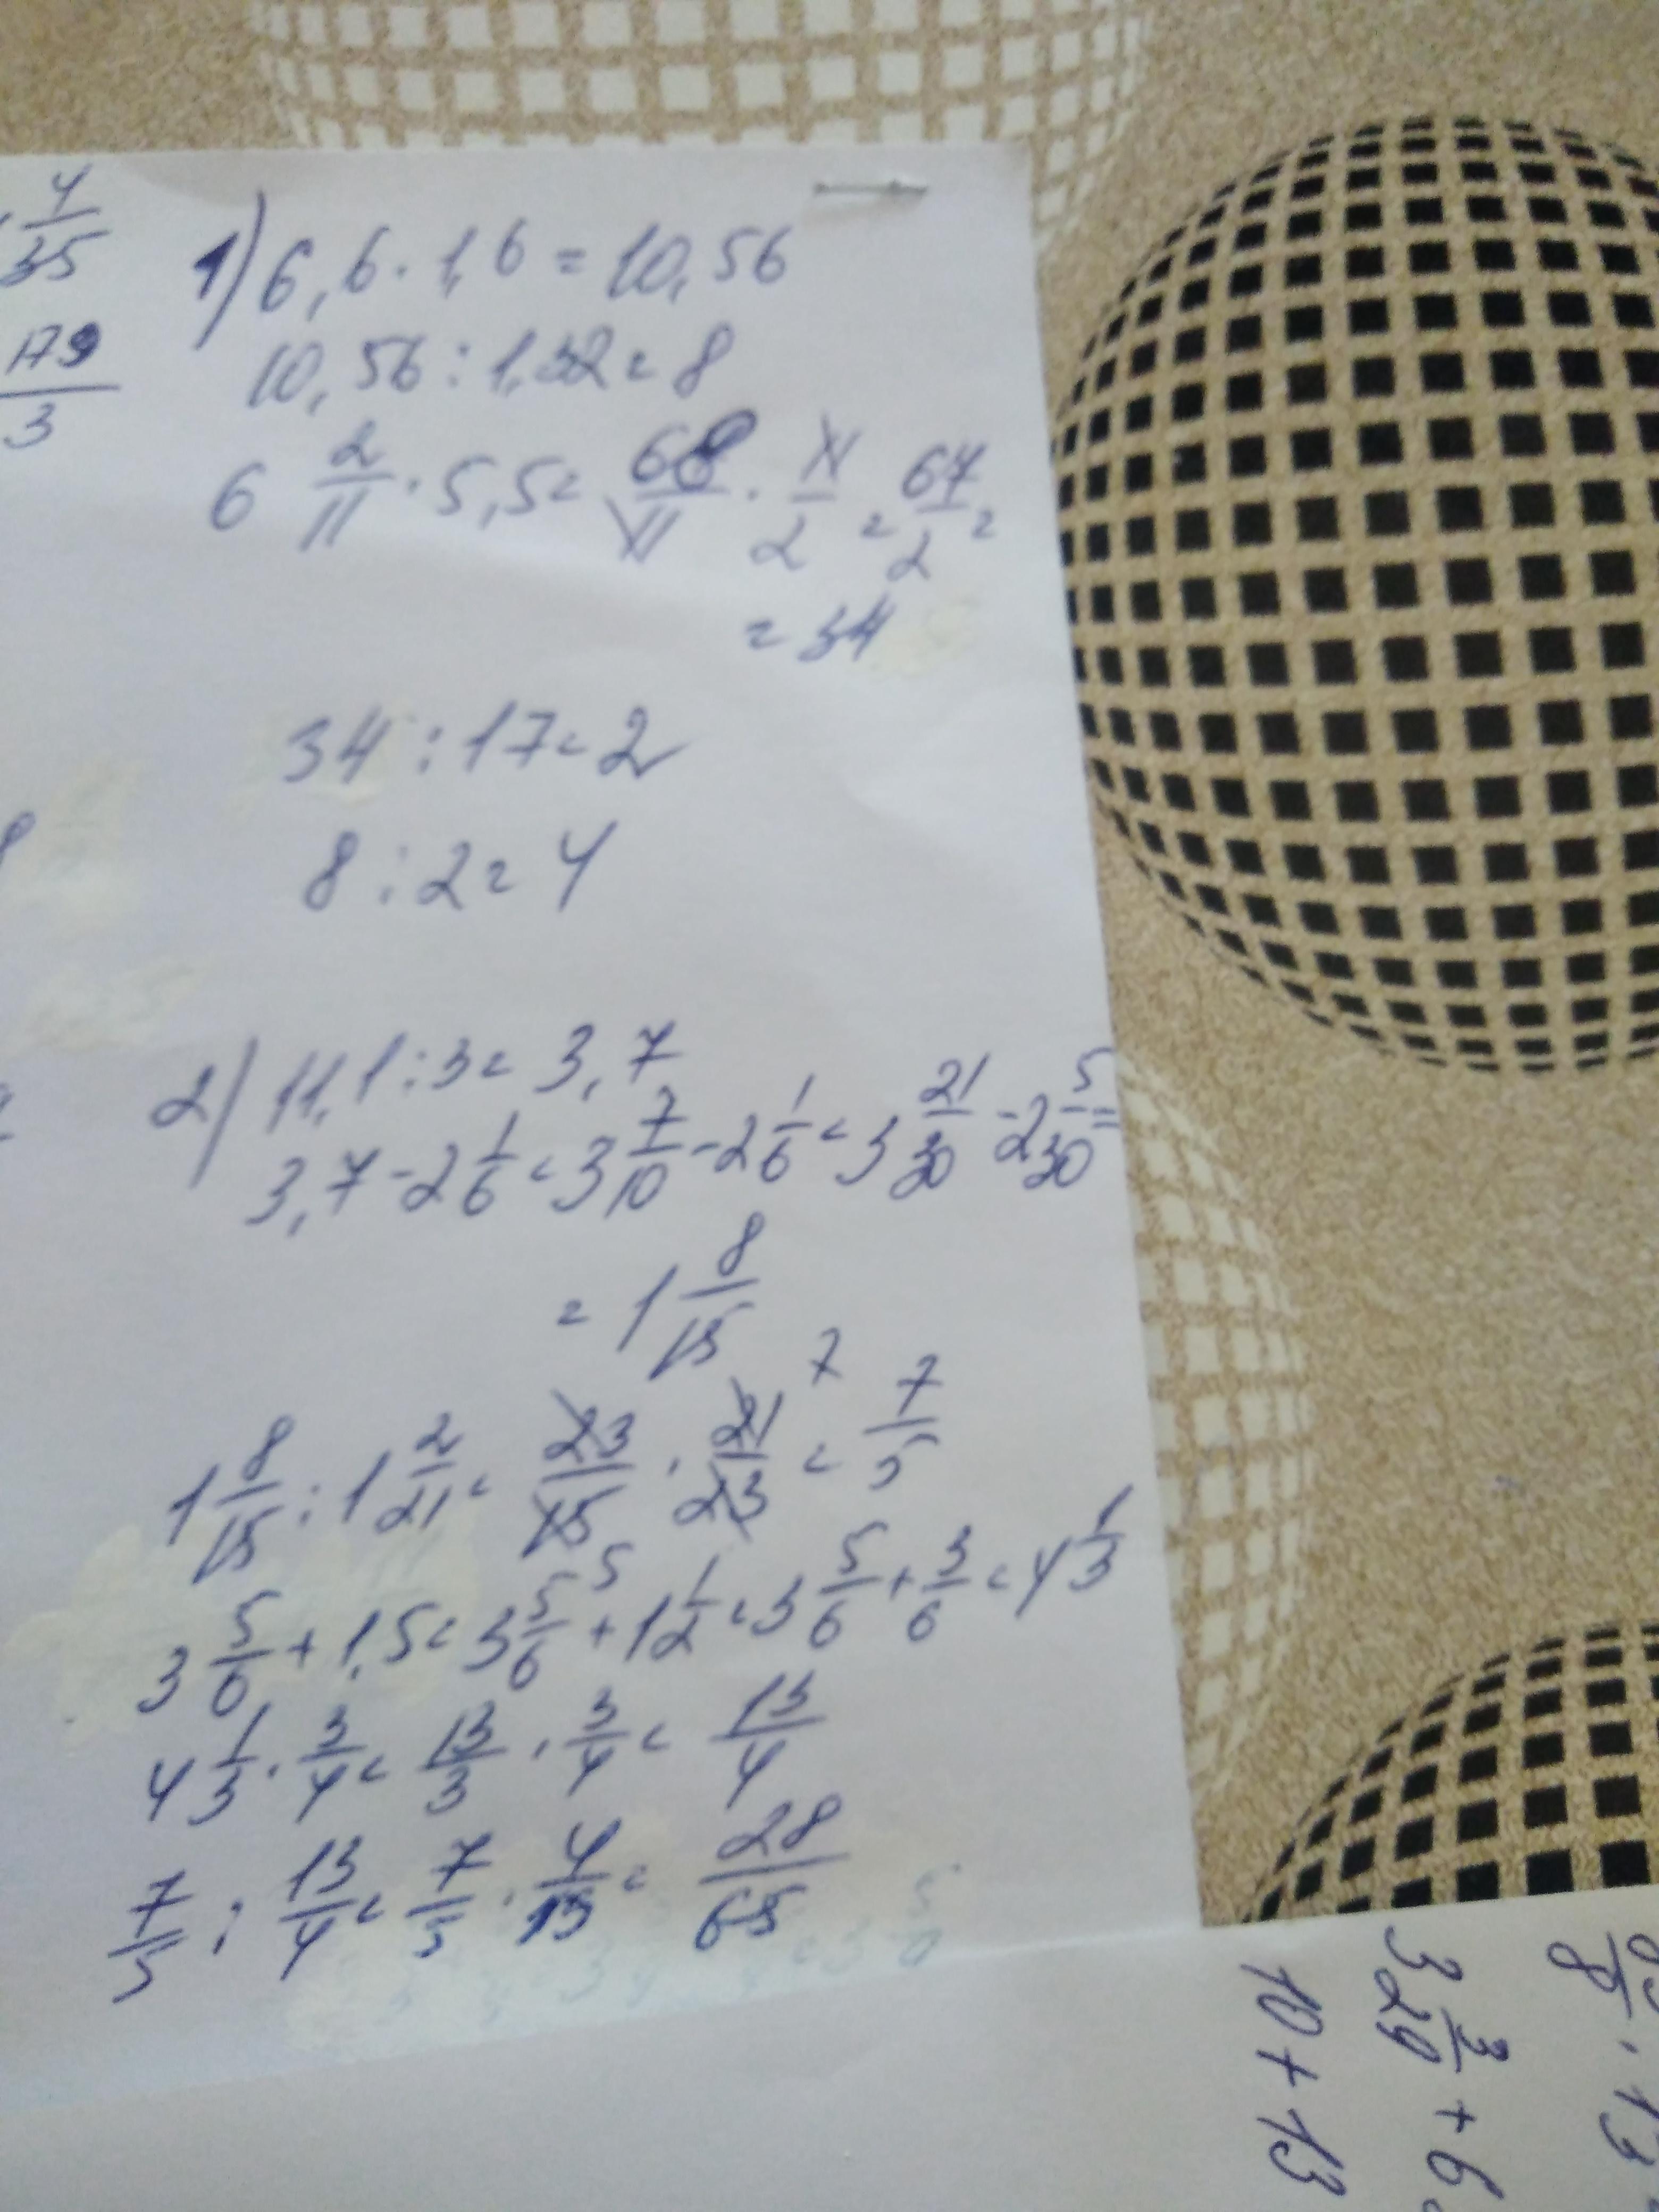 4/35
179/3
1) 6,6 · 1,6 = 10,56
10,56 : 1,32 = 8
6 2/11 · 5,5 = 68/11 · 11/2 = 67/2 =
= 34
34 : 17 = 2
8 : 2 = 4
2) 11,1 : 3 = 3,7
3,7 - 2 1/6 = 3 7/10 - 2 1/6 = 3 21/30 - 2 5/30 =
= 1 8/15
1 8/15 : 1 2/21 = 23/15 5 · 21/23 7 = 7/5
3 5/6 + 1,5 = 3 5/6 + 1 1/2 = 3 5/6 + 3/6 = 4 1/3
4 1/3 · 3/4 = 13/3 · 3/4 = 13/4
7/5 : 13/4 = 7/5 · 4/13 = 28/65
10 + 13